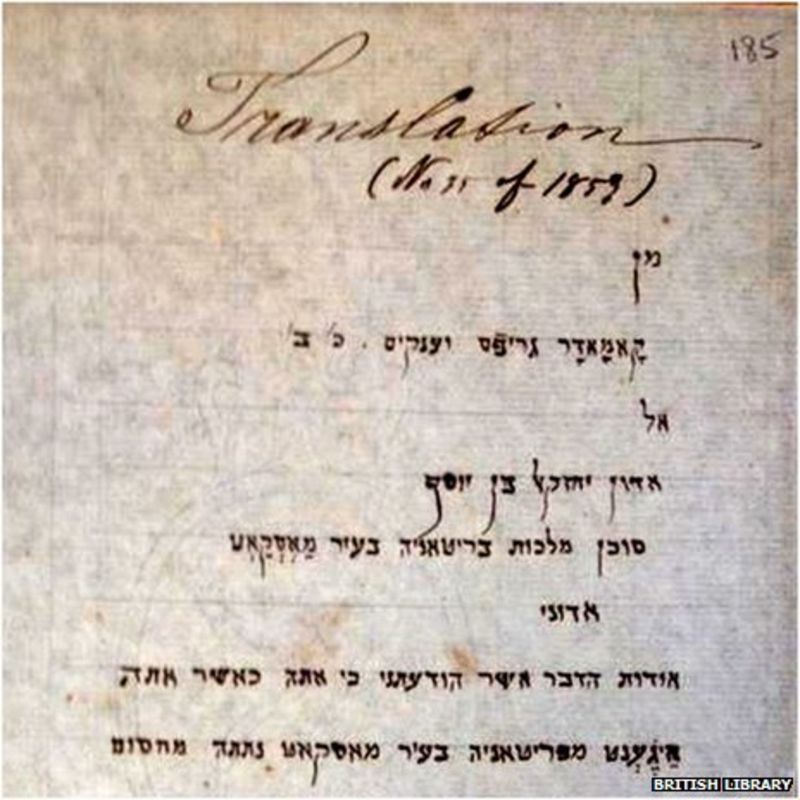 185
Translation
(No 35 of 1859)
מן
קָאמָאדָר גריפֿס וענקיס . כ׳ ב׳
אל
אדון יחזקל בן יוסף
סוכן מלכות בריטאניה בעיר מַאסְקַאט
אדוני
אודות הדבר אשר הודעתני כי אתה כאשר אתה
אֵיגֶ׳ענט מבריטאניה בעיר מאסקאט נתתה מחסום
BRITISH LIBRARY